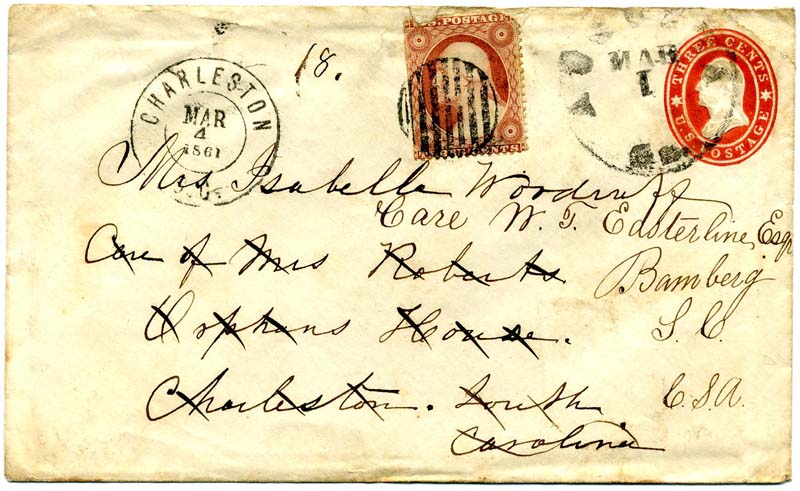 18.
U.S. POSTAGE
CENTS
CHARLESTON
MAR
4
1861
MAR
1
THREE CENTS
U.S. POSTAGE
Mrs Isabella Woodruff
Care W. T. Easterline, Esqr
Care of Mrs Roberts
Bamberg
Orphans House.
S. C.
Charleston. South
C.S.A.
Carolina